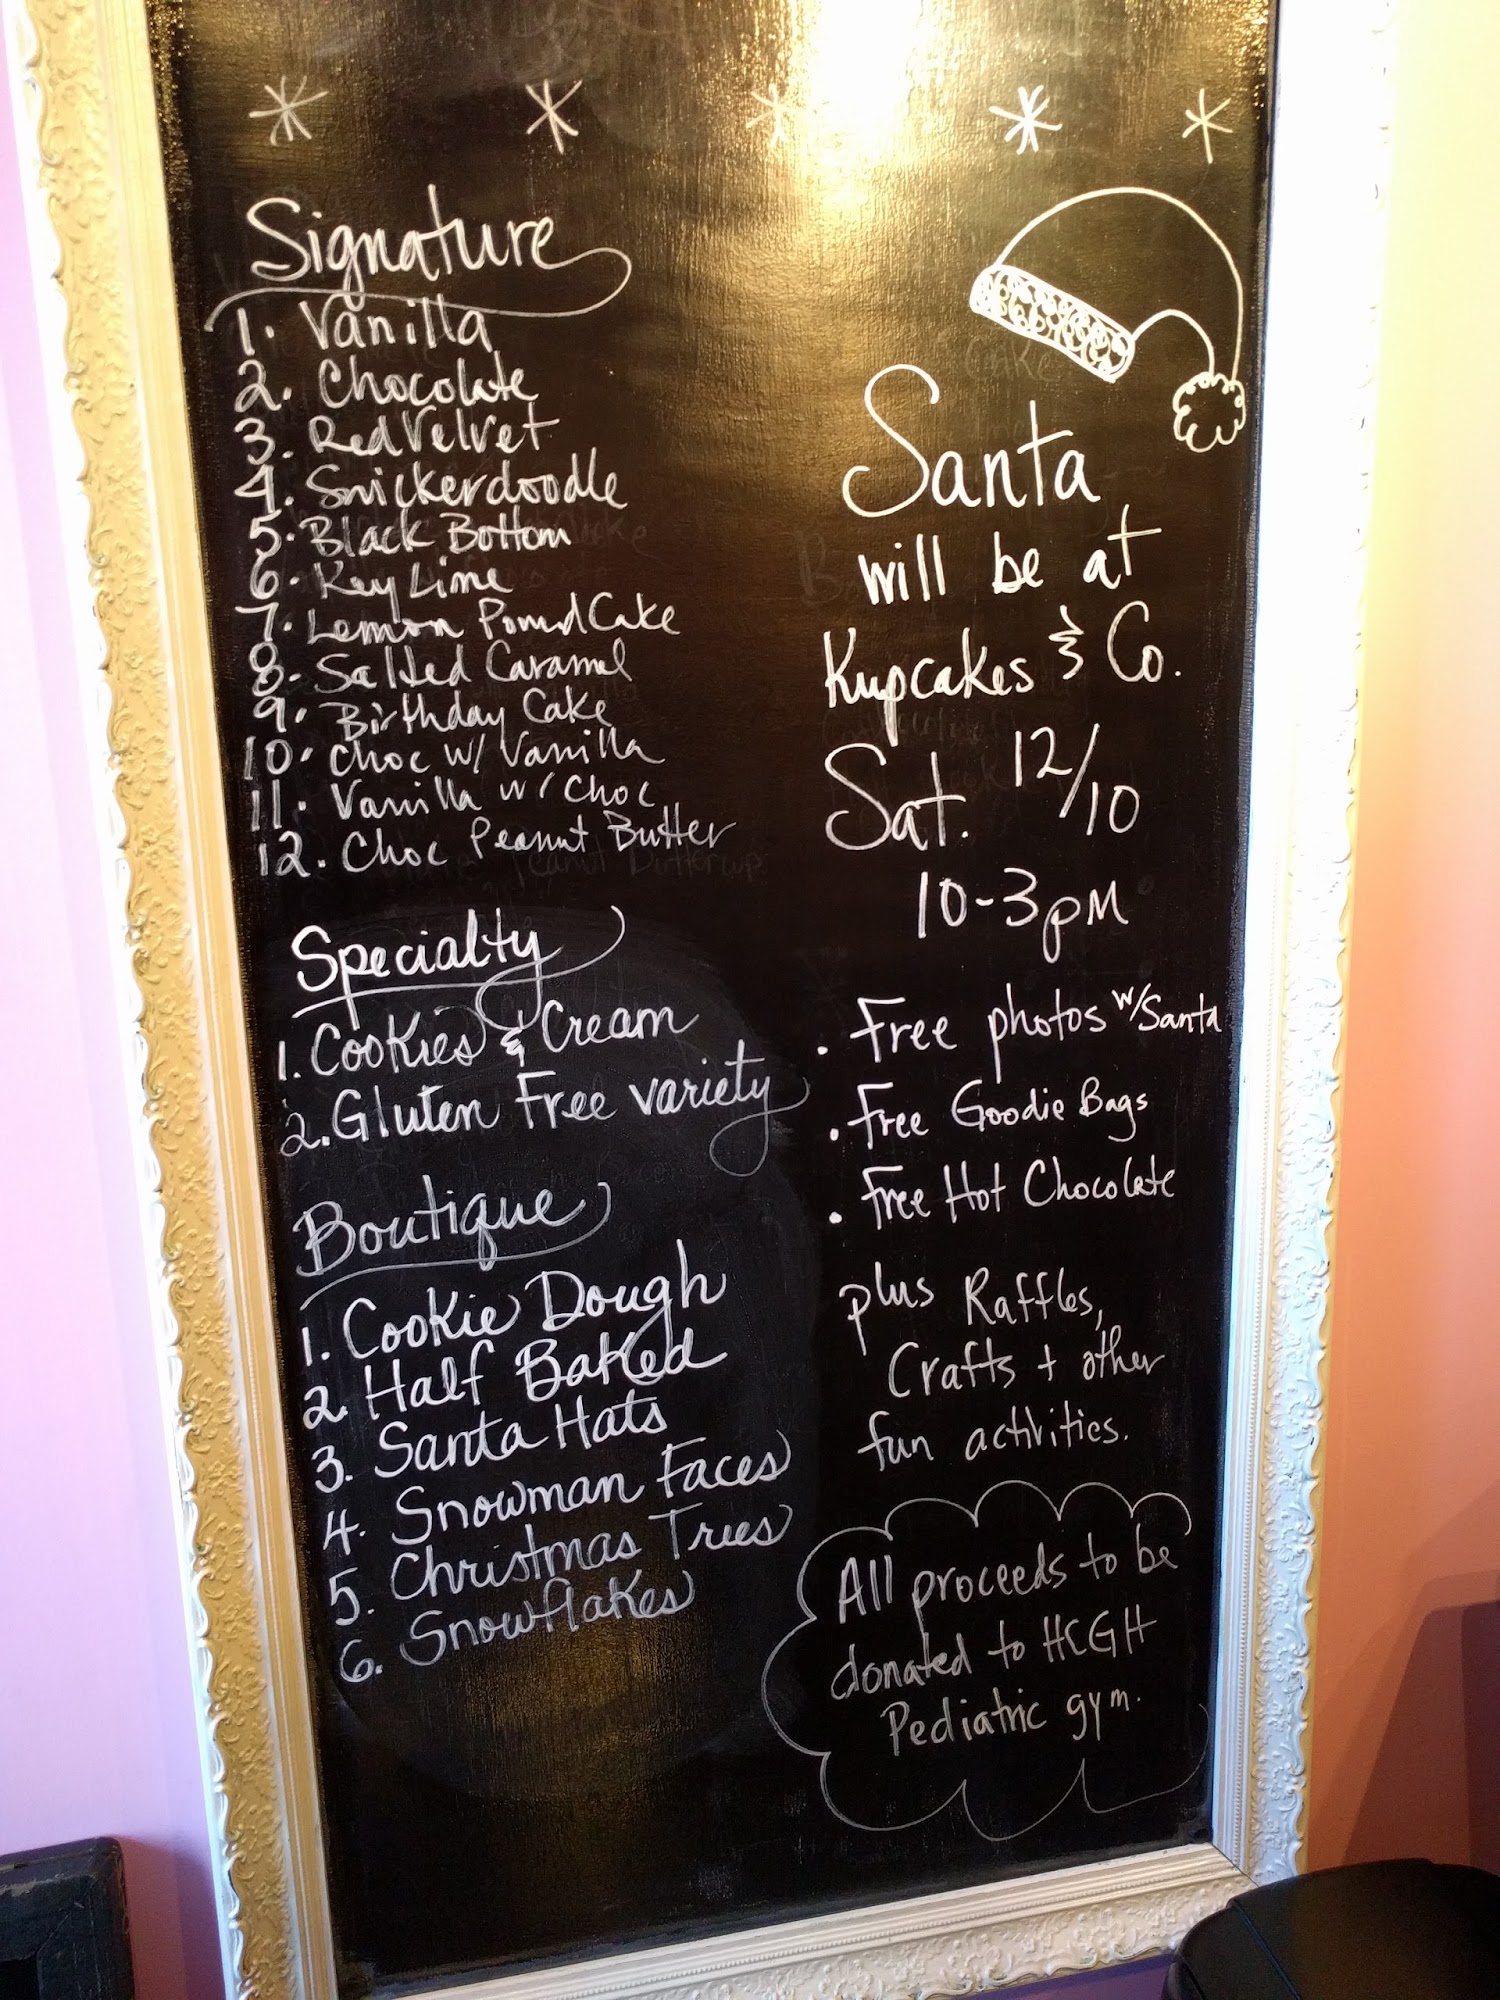 Signature
1. Vanilla
2. Chocolate
3. Red Velvet
4. Snickerdoodle
5. Black Bottom
6. Key Lime
7. Lemon Pound Cake
8. Salted Caramel
9. Birthday Cake
10. Choc w/ Vanilla
11. Vanilla w/ Choc
12. Choc Peanut Butter
Specialty
1. Cookies & Cream
2. Gluten Free variety
Boutique
1. Cookie Dough
2. Half Baked
3. Santa Hats
4. Snowman Faces
5. Christmas Trees
6. Snowflakes
Santa
will be at
Kupcakes & Co.
Sat. 12/10
10-3pm
• Free photos w/Santa
• Free Goodie Bags
• Free Hot Chocolate
plus Raffles,
Crafts + other
fun activities.
All proceeds to be
donated to HCGH
Pediatric gym.